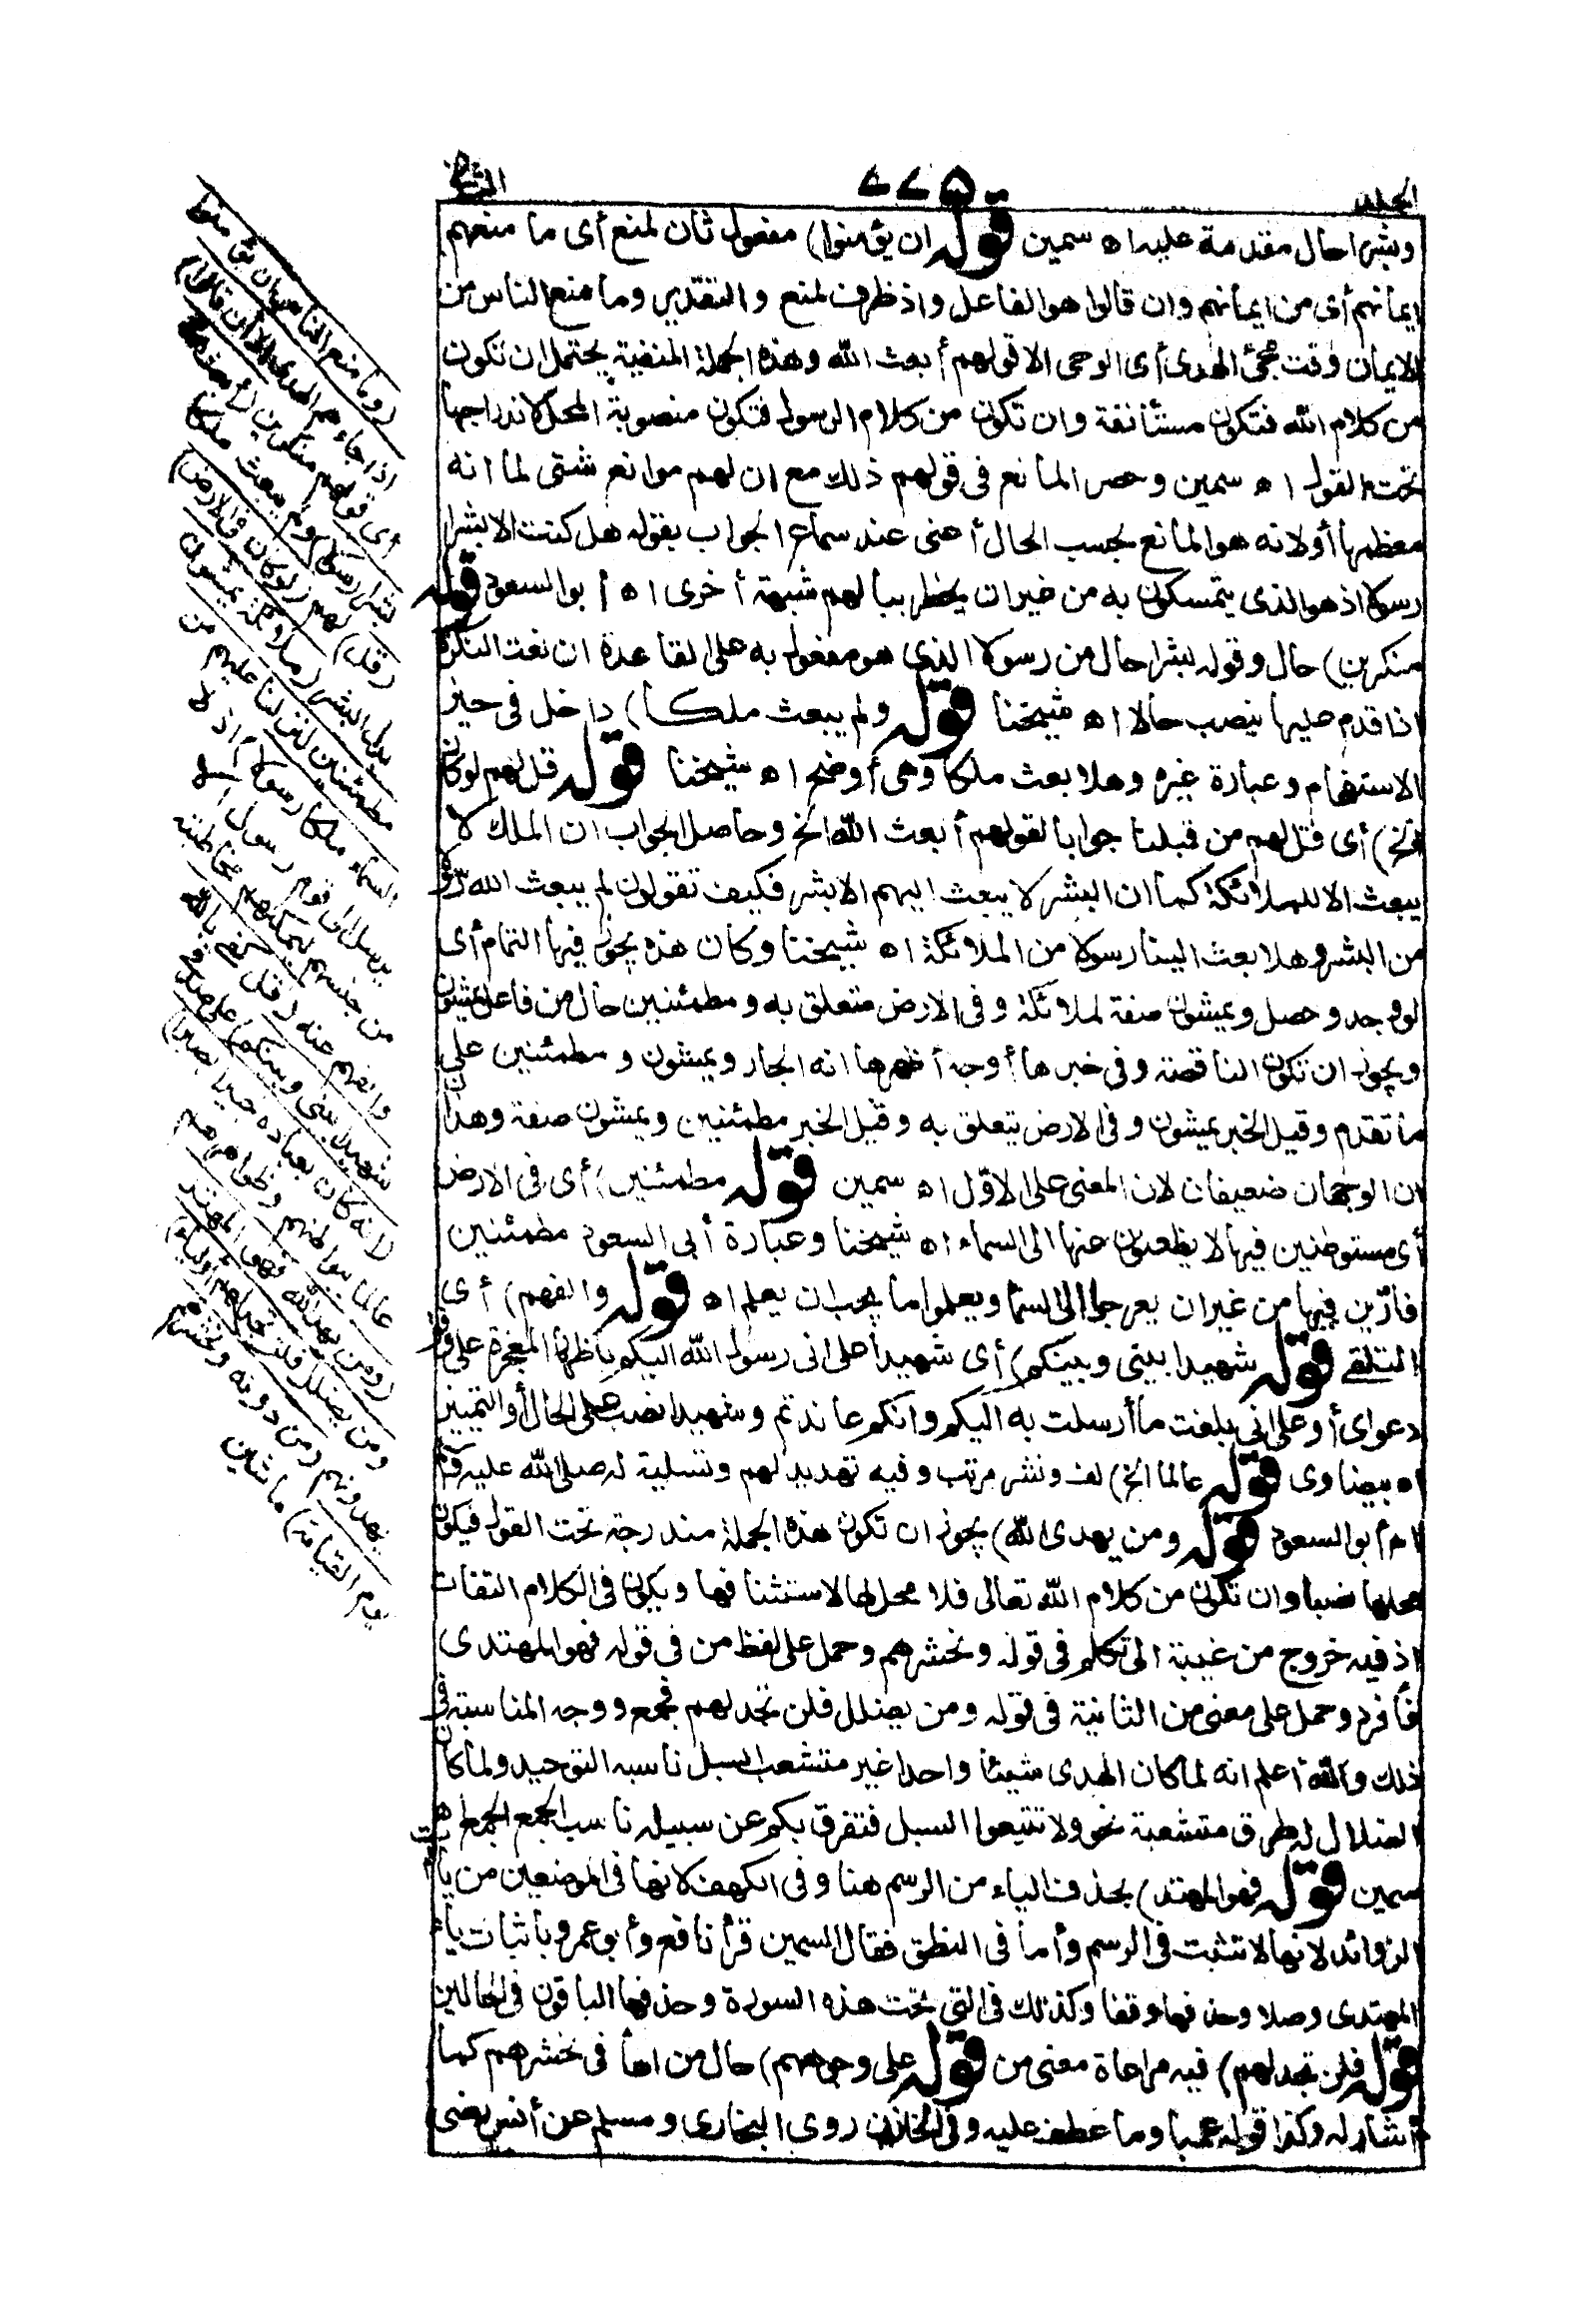 الجلد
٧٧٥
الثاني
وبشرا حال مقدمة عليه اه سمين قوله ان يؤمنوا) مفعول ثان لمنع أى ما منعهم
ايمانهم أى من ايمانهم وان قالوا هو الفاعل واذ ظرف لمنع والتقدير وما منع الناس من
الايمان وقت مجئ الهدى أى الوحى الا قولهم أبعث الله وهذه الجملة المنفية يحتمل ان تكون
من كلام الله فتكون مستأنفة وان تكون من كلام الرسول فتكون منصوبة المحل لاندراجها
تحت القول اه سمين وحصر المانع فى قولهم ذلك مع ان لهم موانع شتى لما انه
معظمها أو لانه هو المانع بحسب الحال أعنى عند سماع الجواب بقوله هل كنت الا بشرا
رسولا اذ هو الذى يتمسكون به من غير ان يخطر ببالهم شبهة أخرى اه أبو السعود قوله
منكرين) حال وقوله بشرا حال من رسولا الذى هو مفعول به على القاعدة ان نعت النكرة
اذا قدم عليها ينصب حالا اه شيخنا قوله ولم يبعث ملكا) داخل فى حيز
الاستفهام وعبارة غيره وهلا بعث ملكا وهى أوضح اه شيخنا قوله قل لهم لو كان
الخ) أى قل لهم من قبلنا جوابا لقولهم أبعث الله الخ وحاصل الجواب ان الملك لا
يبعث الا للملائكة كما ان البشر لا يبعث اليهم الا بشر فكيف تقولون لم يبعث الله رسولا
من البشر وهلا بعث الينا رسولا من الملائكة اه شيخنا وكان هذه يجوز فيها التمام أى
لو وجد وحصل ويمشون صفة لملائكة وفى الارض متعلق به ومطمئنين حال من فاعل يمشون
ويجوز ان تكون الناقصة وفى خبرها أوجه أظهرها انه الجار ويمشون ومطمئنين على
ما تقدم وقيل الخبر يمشون وفى الارض يتعلق به وقيل الخبر مطمئنين ويمشون صفة وهذا
ن الوجهان ضعيفان لان المعنى على الاول اه سمين قوله مطمئنين) أى فى الارض
أى مستوطنين فيها لا يظعنون عنها الى السماء اه شيخنا وعبارة أبى السعود مطمئنين
قارّين فيها من غير ان يعرجوا الى السما ويعلموا ما يجب ان يعلم اه قوله والفهم) أى
التلقى قوله شهيدا بينى وبينكم) أى شهيدا على انى رسول الله اليكم باظهار المعجزة على وفق
دعواى أو على انى بلغت ما أرسلت به اليكم وانكم عاندتم وشهيدا نصب على الحال أو التمييز
اه بيضاوى قوله عالما الخ) لف ونشر مرتب وفيه تهديد لهم وتسلية له صلى الله عليه وسلم
اه أبو السعود قوله ومن يهدى الله) يجوز ان تكون هذه الجملة مندرجة تحت القول فيكون
محلها نصبا وان تكون من كلام الله تعالى فلا محل لها لاستئنافها ويكون فى الكلام التفات
اذ فيه خروج من غيبة الى تكلم فى قوله ونحشرهم وحمل على لفظ من فى قوله فهو المهتدى
فأفرد وحمل على معنى من الثانية فى قوله ومن يضلل فلن تجد لهم فجمع ووجه المناسبة فى
ذلك والله أعلم انه لما كان الهدى شيئا واحدا غير متشعب السبل ناسبه التوحيد ولما كان
الضلال له طرق متشعبة نحو ولا تتبعوا السبل فتفرق بكم عن سبيله ناسب الجمع الجمع اه
سمين قوله فهو المهتد) بحذف الياء من الرسم هنا وفى الكهف لانها فى الموضعين من ياآت
الزوائد لانها لا تثبت فى الرسم وأما فى النطق فقال السمين قرأ نافع وأبو عمرو باثبات ياء
المهتدى وصلا وحذفها وقفا وكذلك فى التى تحت هذه السورة وحذفها الباقون فى الحالين
قوله فلن تجد لهم) فيه مراعاة معنى من قوله على وجوههم) حال من الهاء فى نحشرهم كما
أشار له وكذا قوله عميا وما عطف عليه وفى الخازن روى البخارى ومسلم عن أنس رضى
(وما منع الناس ان يؤمنوا
اذ جاءهم الهدى الا أن قالوا)
أى قولهم منكرين (أبعث الله
بشرا رسولا) ولم يبعث ملكا
(قل) لهم (لو كان فى الارض)
بدل البشر (ملائكة يمشون
مطمئنين لنزلنا عليهم من
السماء ملكا رسولا) اذ لا
يرسل الى قوم رسول الا
من جنسهم ليمكنهم مخاطبته
والفهم عنه (قل كفى بالله
شهيدا بينى وبينكم) على صدقى
(انه كان بعباده خبيرا بصيرا)
عالما ببواطنهم وظواهرهم
(ومن يهد الله فهو المهتد
ومن يضلل فلن تجد لهم أولياء)
يهدونهم (من دونه ونحشرهم
يوم القيامة) ماشين